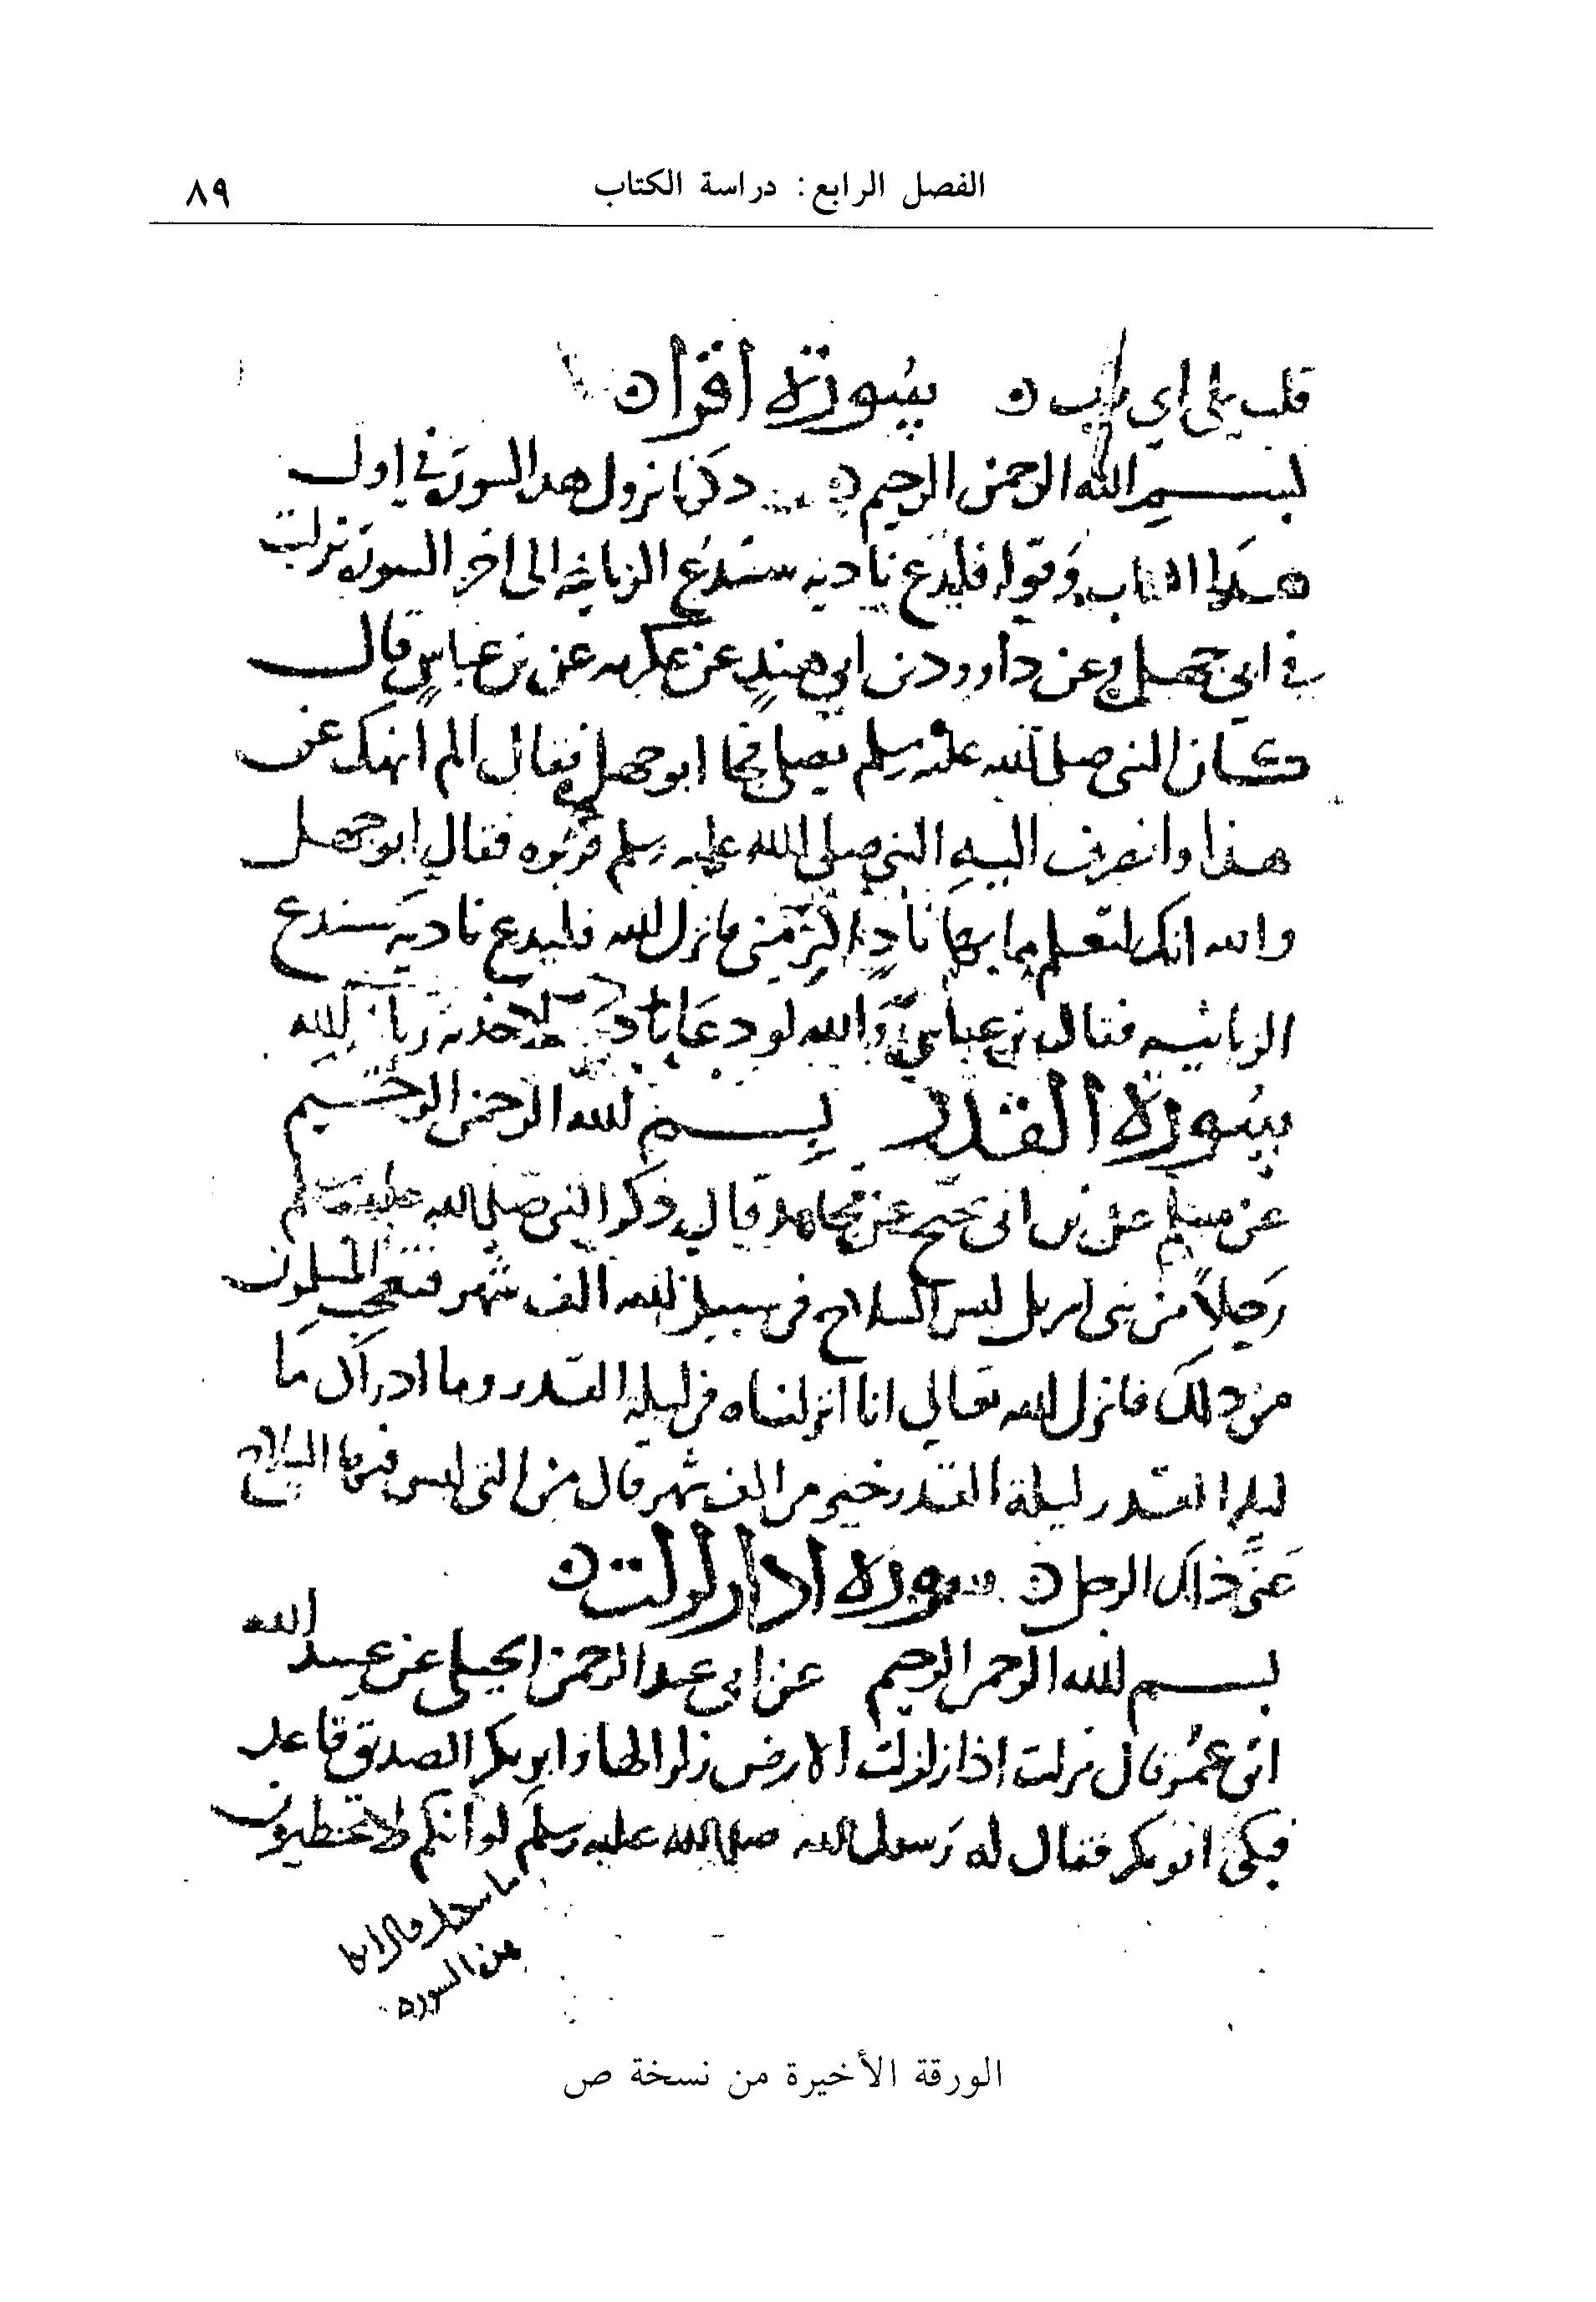 الفصل الرابع: دراسة الكتاب ٨٩
قلت بلى اي رب ه سورة اقرأ ه
بسم الله الرحمن الرحيم ه ذكرنا نزول هذا السورة في اول
هذا الكتاب وقوله فليدع ناديه سندع الزبانية الى اخر السورة نزلت
في ابي جهل ه عن داوود بن ابي هند عن عكرمه عن بن عباس قال
كان النبي صلى الله عليه وسلم يصلي فجا ابو جهل فقال الم انهك عن
هذا وانصرف اليه النبي صلى الله عليه وسلم فزبره فقال ابو جهل
والله انك لتعلم ما بها ناد اكثر مني فانزل الله فليدع ناديه سندع
الزبانيه فقال بن عباس والله لو دعا ناديه لاخذته زبانية الله
سورة القدر بسم الله الرحمن الرحيم
عن مسلم عن بن ابي نجيح عن مجاهد قال ذكر النبي صلى الله عليه وسلم
رجلاً من بني اسريل لبس السلاح في سبيل الله الف شهر فتعجب المسلمون
من ذلك فانزل الله تعالى انا انزلناه في ليلة القدر وما ادراك ما
ليلة القدر ليلة القدر خير من الف شهر قال من التي لبس فيها السلاح
ذلك الرجل ه سوره ادا زلزلت ه
بسم الله الرحمن الرحيم عن ابي عبد الرحمن الجبلي عن عبد الله
ابن عمر قال نزلت اذا زلزلت الارض زلزالها وابو بكر الصديق قاعد
فبكى ابو بكر فقال له رسول الله صلى الله عليه وسلم لو انكم لا تخطيون
من السوره
الورقة الأخيرة من نسخة ص